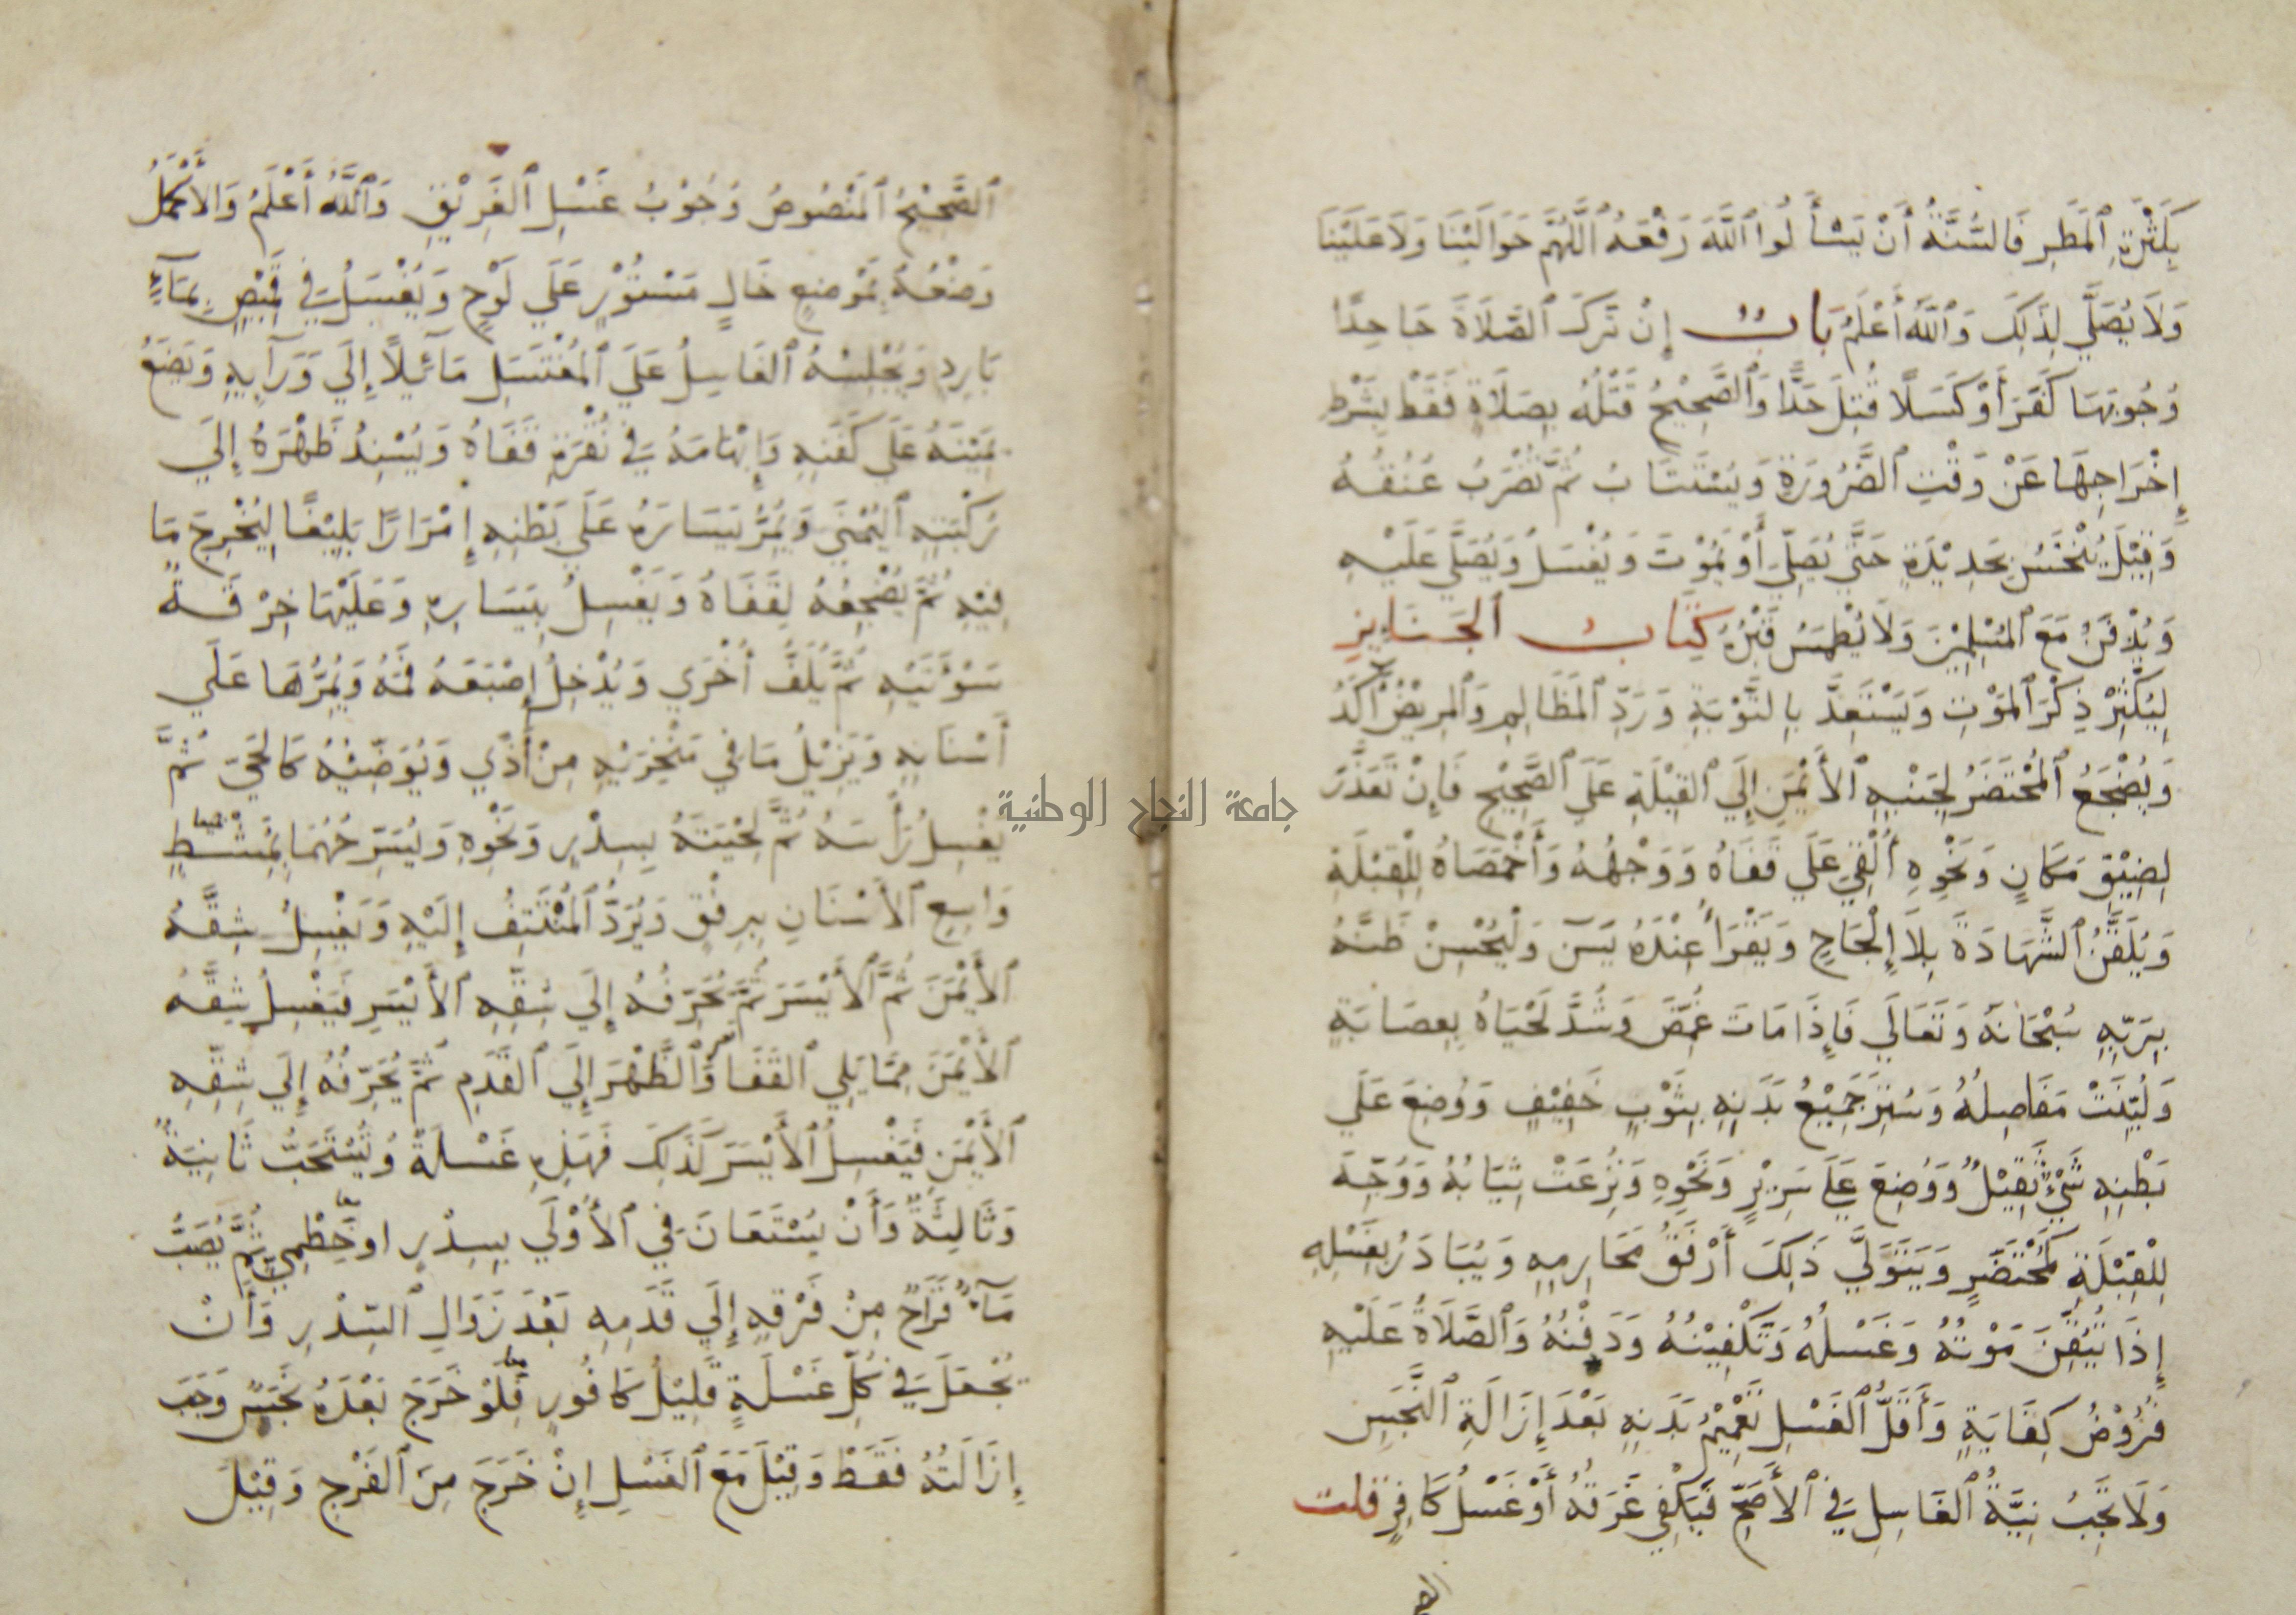 بِكَثْرَةِ ٱلْمَطَرِ فَالسُّنَّةُ أَنْ يَسْأَلُوا ٱللَّهَ رَفْعَهُ ٱللَّهُمَّ حَوَالَيْنَا وَلَا عَلَيْنَا
وَلَا يُصَلَّي لِذَلِكَ وَٱللَّهُ أَعْلَمُ بَابٌ إِنْ تَرَكَ ٱلصَّلَاةَ جَاحِدًا
وُجُوبَهَا كَفَرَ أَوْ كَسَلًا قُتِلَ حَدًّا وَٱلصَّحِيْحُ قَتْلُهُ بِصَلَاةٍ فَقَطْ بِشَرْطِ
إِخْرَاجِهَا عَنْ وَقْتِ ٱلضَّرُورَةِ وَيُسْتَتَابُ ثُمَّ تُضْرَبُ عُنُقُهُ
وَقِيْلَ يُنْخَسُ بِحَدِيْدَةٍ حَتَّي يُصَلِّيَ أَوْ يَمُوْتَ وَيُغْسَلُ وَيُصَلَّي عَلَيْهِ
وَيُدْفَنُ مَعَ ٱلْمُسْلِمِيْنَ وَلَا يُطْمَسُ قَبْرُهُ كِتَابُ ٱلجَنَايِزِ
لِيُكْثِرْ ذِكْرَ ٱلْمَوْتِ وَيَسْتَعِدَّ بِالتَّوْبَةِ وَرَدِّ ٱلْمَظَالِمِ وَٱلْمَرِيْضُ آكَدُ
وَيُضْجَعُ ٱلْمُحْتَضَرُ لِجَنْبِهِ ٱلْأَيْمَنِ إِلَي ٱلْقِبْلَةِ عَلَي ٱلصَّحِيْحِ فَإِنْ تَعَذَّرَ
لِضِيْقِ مَكَانٍ وَنَحْوِهِ أُلْقِيَ عَلَي قَفَاهُ وَوَجْهُهُ وَأَخْمَصَاهُ لِلْقِبْلَةِ
وَيُلَقَّنُ ٱلشَّهَادَةَ بِلَا إِلْحَاحٍ وَيُقْرَأُ عِنْدَهُ يَسَ وَلْيُحْسِنْ ظَنَّهُ
بِرَبِّهِ سُبْحَانَهُ وَتَعَالَي فَإِذَا مَاتَ غُمِّضَ وَشُدَّ لَحْيَاهُ بِعِصَابَةٍ
وَلُيِّنَتْ مَفَاصِلُهُ وَسُتِرَ جَمِيْعُ بَدَنِهِ بِثَوْبٍ خَفِيْفٍ وَوُضِعَ عَلَي
بَطْنِهِ شَيْءٌ ثَقِيْلٌ وَوُضِعَ عَلَي سَرِيْرٍ وَنَحْوِهِ وَنُزِعَتْ ثِيَابُهُ وَوُجِّهَ
لِلْقِبْلَةِ كَمُحْتَضَرٍ وَيَتَوَلَّي ذَلِكَ أَرْفَقُ مَحَارِمِهِ وَيُبَادَرُ بِغَسْلِهِ
إِذَا تُيُقِّنَ مَوْتُهُ وَغَسْلُهُ وَتَكْفِيْنُهُ وَدَفْنُهُ وَٱلصَّلَاةُ عَلَيْهِ
فُرُوْضُ كِفَايَةٍ وَأَقَلُّ ٱلْغَسْلِ تَعْمِيْمُ بَدَنِهِ بَعْدَ إِزَالَةِ ٱلنَّجَسِ
وَلَا تَجِبُ نِيَّةُ ٱلْغَاسِلِ فِي ٱلْأَصَحِّ فَيَكْفِي غَرَقُهُ أَوْ غَسْلُ كَافِرٍ قلت
ٱلصَّحِيْحُ ٱلْمَنْصُوصُ وُجُوْبُ غَسْلِ ٱلْغَرِيْقِ وَٱللَّهُ أَعْلَمُ وَالأَكْمَلُ
وَضْعُهُ بِمَوْضِعٍ خَالٍ مَسْتُوْرٍ عَلَي لَوْحٍ وَيُغْسَلُ فِي قَمِيْصٍ بِمَآءٍ
بَارِدٍ وَيُجْلِسُهُ ٱلْغَاسِلُ عَلَي ٱلْمُغْتَسَلِ مَآئِلًا إِلَي وَرَآيِهِ وَيَضَعُ
يَمِيْنَهُ عَلَي كَتِفِهِ وَإِبْهَامَهُ فِي نُقْرَةِ قَفَاهُ وَيُسْنِدُ ظَهْرَهُ إِلَي
رُكْبَتِهِ ٱلْيُمْنَي وَيُمِرُّ يَسَارَهُ عَلَي بَطْنِهِ إِمْرَارًا بَلِيْغًا لِيُخْرِجَ مَا
فِيْهِ ثُمَّ يُضْجِعُهُ لِقَفَاهُ وَيَغْسِلُ بِيَسَارِهِ وَعَلَيْهَا خِرْقَةٌ
سَوْءَتَيْهِ ثُمَّ يَلُفُّ أُخْرَي وَيُدْخِلُ إِصْبَعَهُ فَمَهُ وَيُمِرُّهَا عَلَي
أَسْنَانِهِ وَيُزِيْلُ مَا فِي مَنْخِرَيْهِ مِنْ أَذًي وَيُوَضِّئُهُ كَالْحَيِّ ثُمَّ
يَغْسِلُ رَأْسَهُ ثُمَّ لِحْيَتَهُ بِسِدْرٍ وَنَحْوِهِ وَيُسَرِّحُهُمَا بِمُشْطٍ
وَاسِعِ ٱلْأَسْنَانِ بِرِفْقٍ وَيُرَدُّ ٱلْمُنْتَتَفُ إِلَيْهِ وَيَغْسِلُ شِقَّهُ
ٱلْأَيْمَنَ ثُمَّ ٱلْأَيْسَرَ ثُمَّ يُحَرِّفُهُ إِلَي شِقِّهِ ٱلْأَيْسَرِ فَيَغْسِلُ شِقَّهُ
ٱلْأَيْمَنَ مِمَّا يَلِي ٱلْقَفَا وَٱلظَّهْرَ إِلَي ٱلْقَدَمِ ثُمَّ يُحَرِّفُهُ إِلَي شِقِّهِ
ٱلْأَيْمَنِ فَيَغْسِلُ ٱلْأَيْسَرَ كَذَلِكَ فَهَذِهِ غَسْلَةٌ وَيُسْتَحَبُّ ثَانِيَةٌ
وَثَالِثَةٌ وَأَنْ يُسْتَعَانَ فِي ٱلْأُوْلَي بِسِدْرٍ اوخِطْمِي ثُمَّ يُصَبُّ
مَآءٌ قَرَاحٌ مِنْ فَرْقِهِ إِلَي قَدَمِهِ بَعْدَ زَوَالِ ٱلسِّدْرِ وَأَنْ
يُجْعَلَ فِي كُلِّ غَسْلَةٍ قَلِيْلُ كَافُورٍ فَلَوْ خَرَجَ بَعْدَهُ نَجَسٌ وَجَبَ
إِزَالَتُهُ فَقَطْ وَقِيْلَ مَعَ ٱلْغَسْلِ إِنْ خَرَجَ مِنَ ٱلْفَرْجِ وَقِيْلَ
جامعة النجاح الوطنية